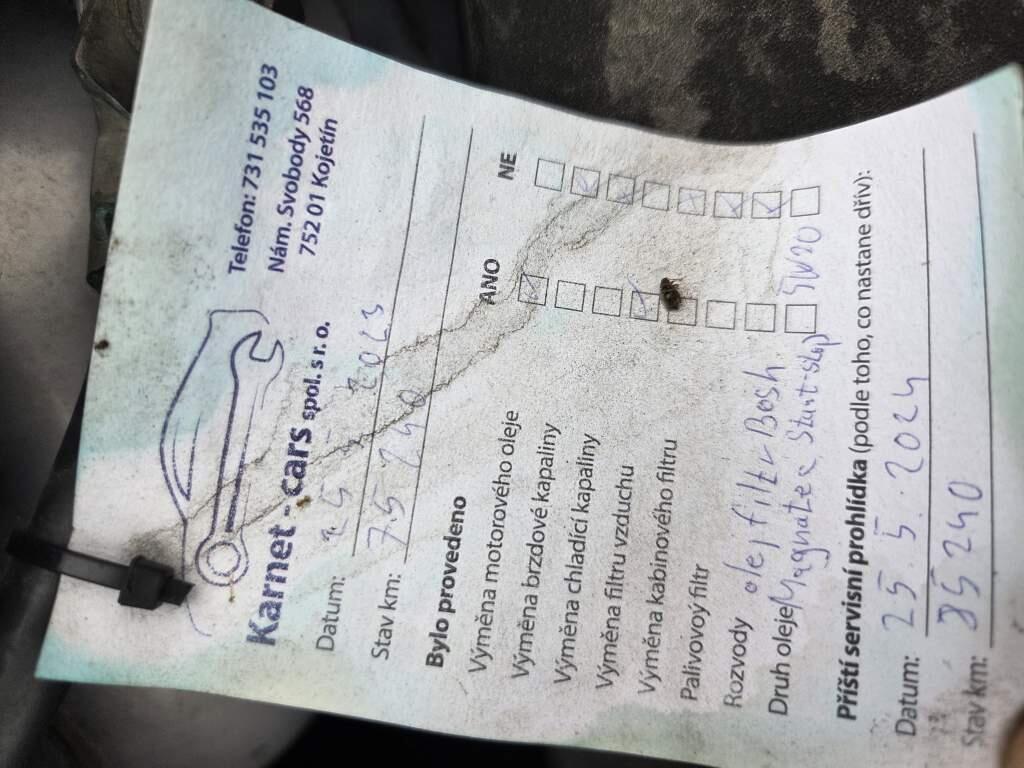 Karnet - cars spol. s r. o.
Telefon: 731 535 103
Nám. Svobody 568
752 01 Kojetín
Datum: 25. 5. 2023
Stav km: 75 240
Bylo provedeno ANO NE
Výměna motorového oleje
Výměna brzdové kapaliny
Výměna chladící kapaliny
Výměna filtru vzduchu
Výměna kabinového filtru
Palivový filtr
Rozvody olej filtr Bosh
Druh oleje Magnatec Start-stop 5W20
Příští servisní prohlídka (podle toho, co nastane dřív):
Datum: 25. 5. 2024
Stav km: 85 240